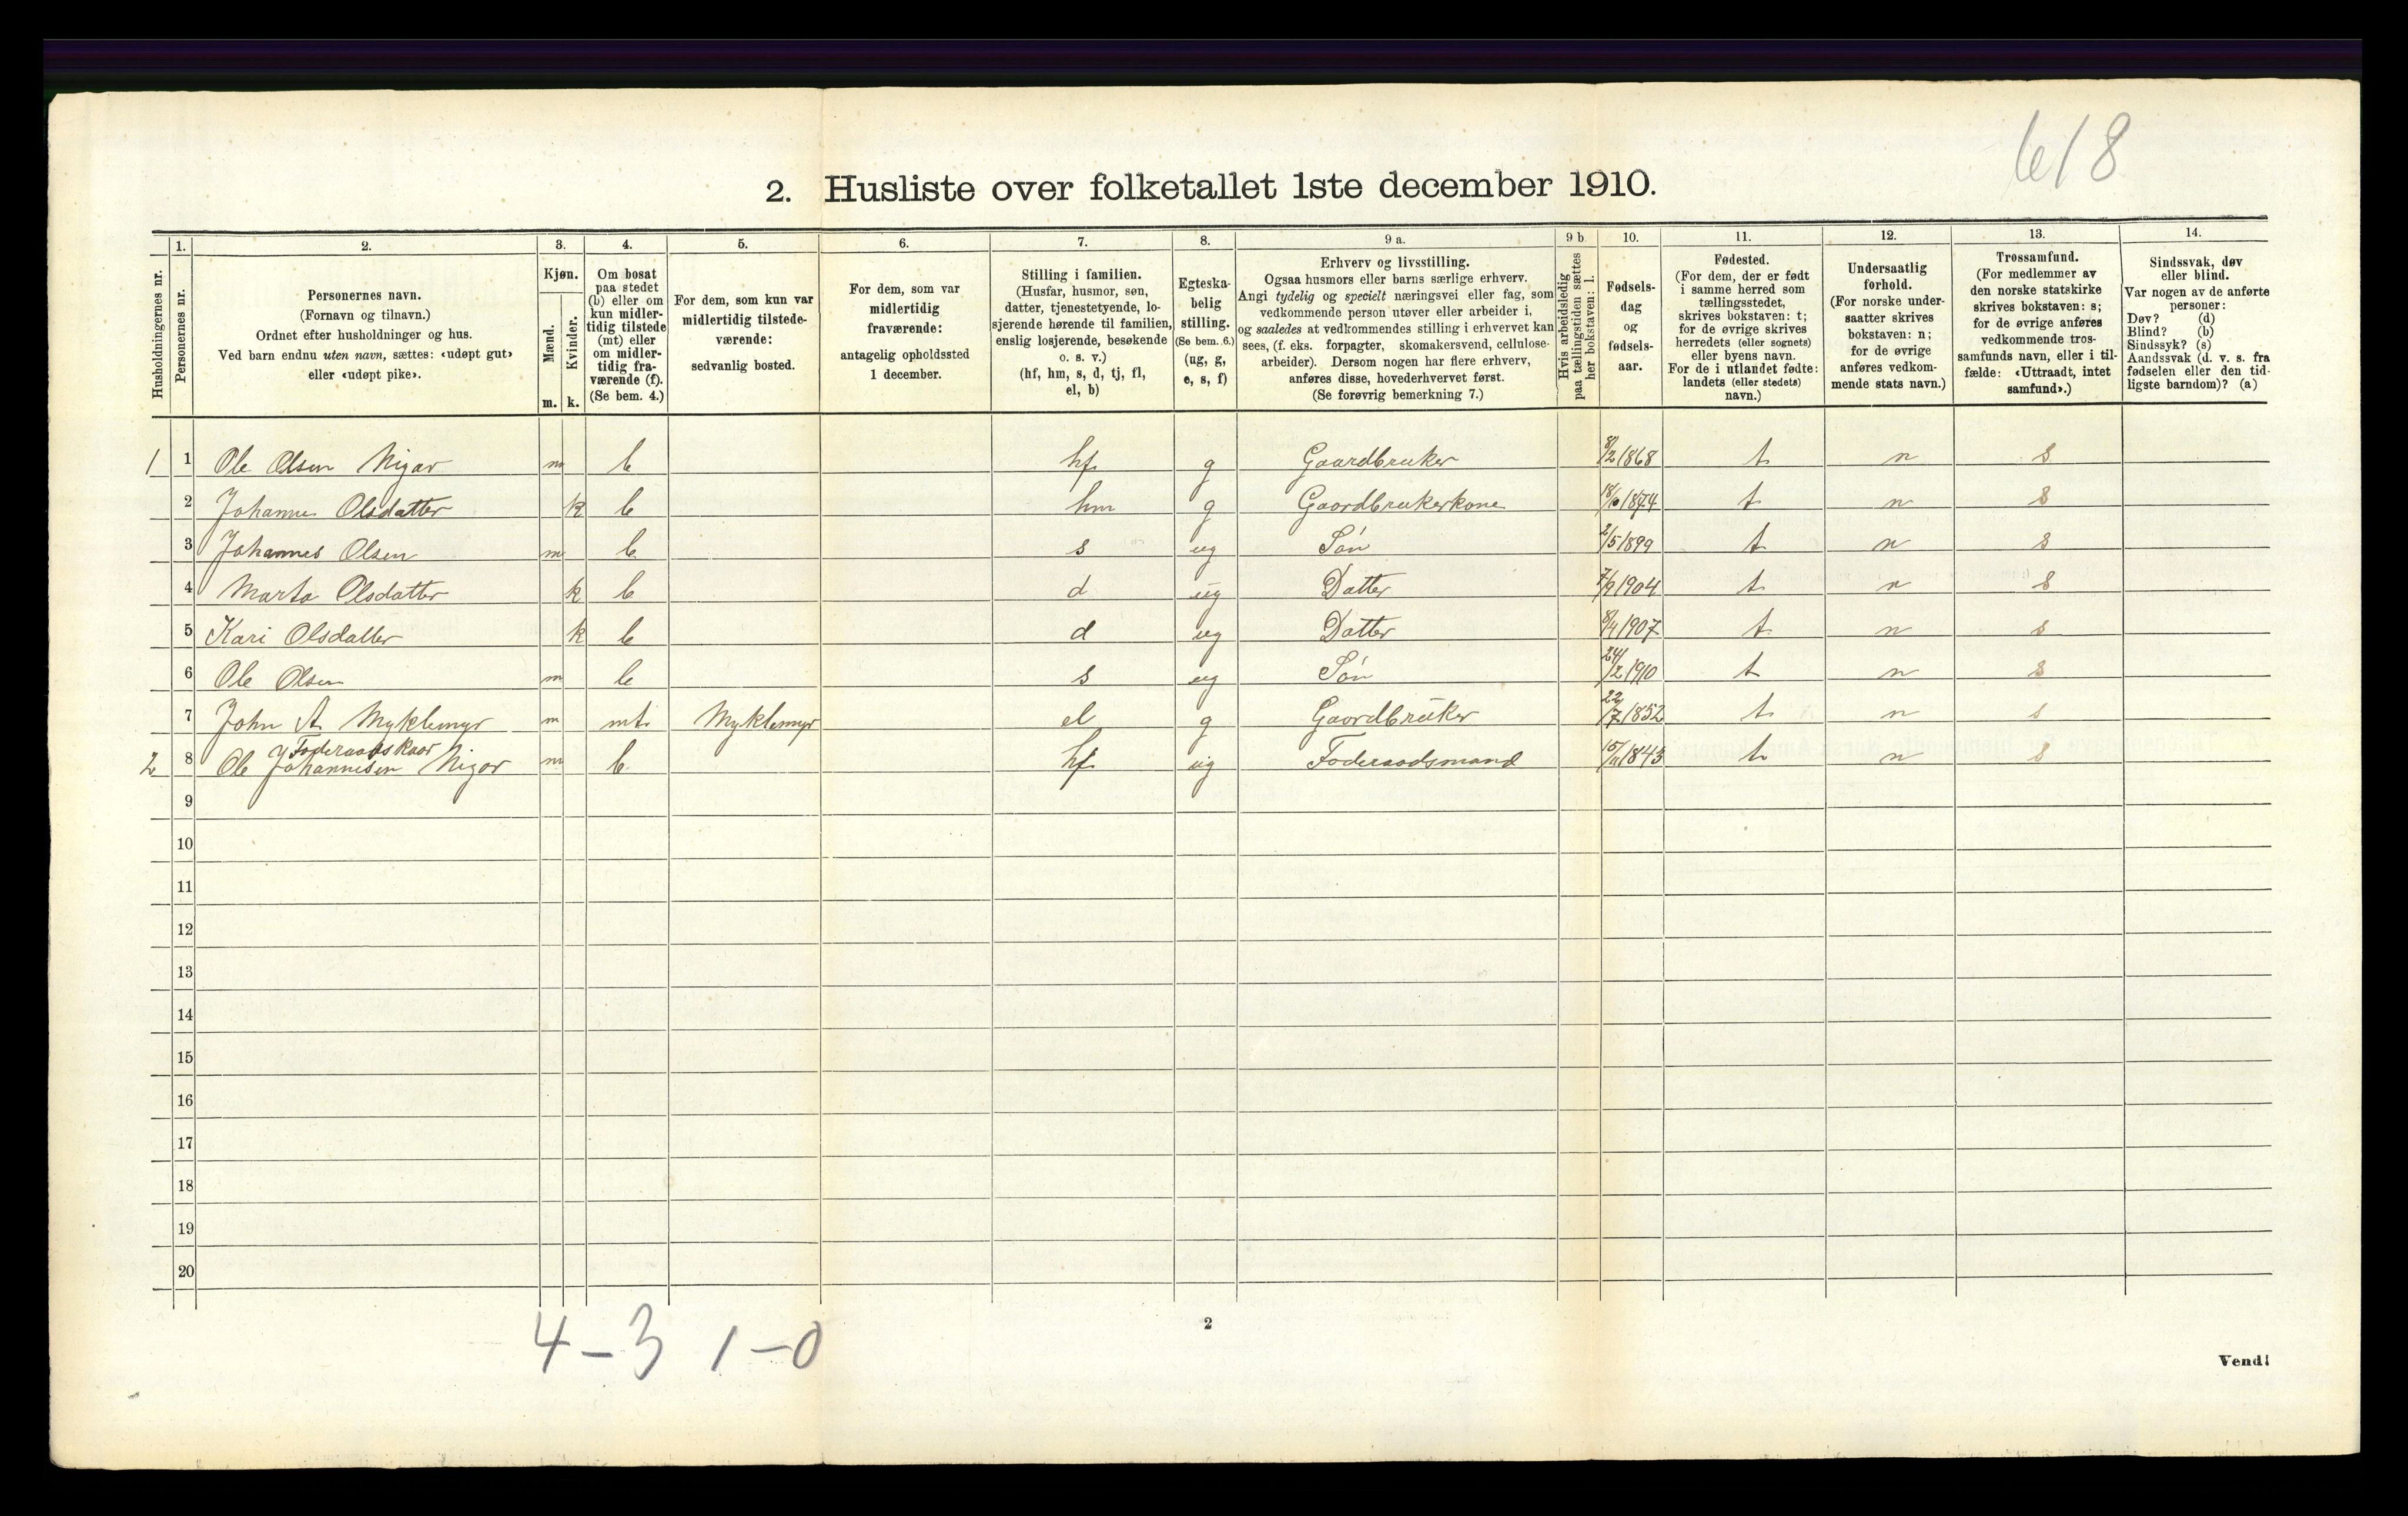 618
2. Husliste over folketallet 1ste december 1910.
Husholdningernes nr.
1.
Personernes nr.
2.
Personernes navn.
(Fornavn og tilnavn.)
Ordnet efter husholdninger og hus.
Ved barn endnu uten navn, sættes: «udøpt gut»
eller «udøpt pike».
3.
Kjøn.
Mænd.
Kvinder.
m. k.
4.
Om bosat
paa stedet
(b) eller om
kun midler-
tidig tilstede
(mt) eller
om midler-
tidig fra-
værende (f).
(Se bem. 4.)
5.
For dem, som kun var
midlertidig tilstede-
værende:
sedvanlig bosted.
6.
For dem, som var
midlertidig
fraværende:
antagelig opholdssted
1 december.
7.
Stilling i familien.
(Husfar, husmor, søn,
datter, tjenestetyende, lo-
sjerende hørende til familien,
enslig losjerende, besøkende
o. s. v.)
(hf, hm, s, d, tj, fl,
el, b)
8.
Egteska-
belig
stilling.
(Se bem. 6.)
(ug, g,
e, s, f)
9 a.
Erhverv og livsstilling.
Ogsaa husmors eller barns særlige erhverv.
Angi tydelig og specielt næringsvei eller fag, som
vedkommende person utøver eller arbeider i,
og saaledes at vedkommendes stilling i erhvervet kan
sees, (f. eks. forpagter, skomakersvend, cellulose-
arbeider). Dersom nogen har flere erhverv,
anføres disse, hovederhvervet først.
(Se forøvrig bemerkning 7.)
9 b
Hvis arbeidsledig
paa tællingstiden sættes
her bokstaven: l.
10.
Fødsels-
dag
og
fødsels-
aar.
11.
Fødested.
(For dem, der er født
i samme herred som
tællingsstedet,
skrives bokstaven: t;
for de øvrige skrives
herredets (eller sognets)
eller byens navn.
For de i utlandet fødte:
landets (eller stedets)
navn.)
12.
Undersaatlig
forhold.
(For norske under-
saatter skrives
bokstaven: n;
for de øvrige
anføres vedkom-
mende stats navn.)
13.
Trossamfund.
(For medlemmer av
den norske statskirke
skrives bokstaven: s;
for de øvrige anføres
vedkommende tros-
samfunds navn, eller i til-
fælde: «Uttraadt, intet
samfund».)
14.
Sindssvak, døv
eller blind.
Var nogen av de anførte
personer:
Døv? (d)
Blind? (b)
Sindssyk? (s)
Aandssvak (d. v. s. fra
fødselen eller den tid-
ligste barndom)? (a)
1 1 Ole Olsen Nigar m b hf g Gaardbruker 8/2 1868 t n s
2 Johanne Olsdatter k b hm g Gaardbrukerkone 1874 t n s
3 Johannes Olsen m b s ug Søn 2/5 1899 t n s
4 Marta Olsdatter k b d ug Datter 7/9 1904 t n s
5 Kari Olsdatter k b d ug Datter 8/4 1907 t n s
6 Ole Olsen m b s ug Søn 24/2 1910 t n s
7 John A Myklemyr m mt Myklemyr el g Gaardbruker 22/7 1852 t n s
Foderaadskaar
2 8 Ole Johannesen Nigar m b hf ug Foderaadsmand 15/11 1843 t n s
9
10
11
12
13
14
15
16
17
18
19
20
4 – 3 1 – 0
2
Vend!